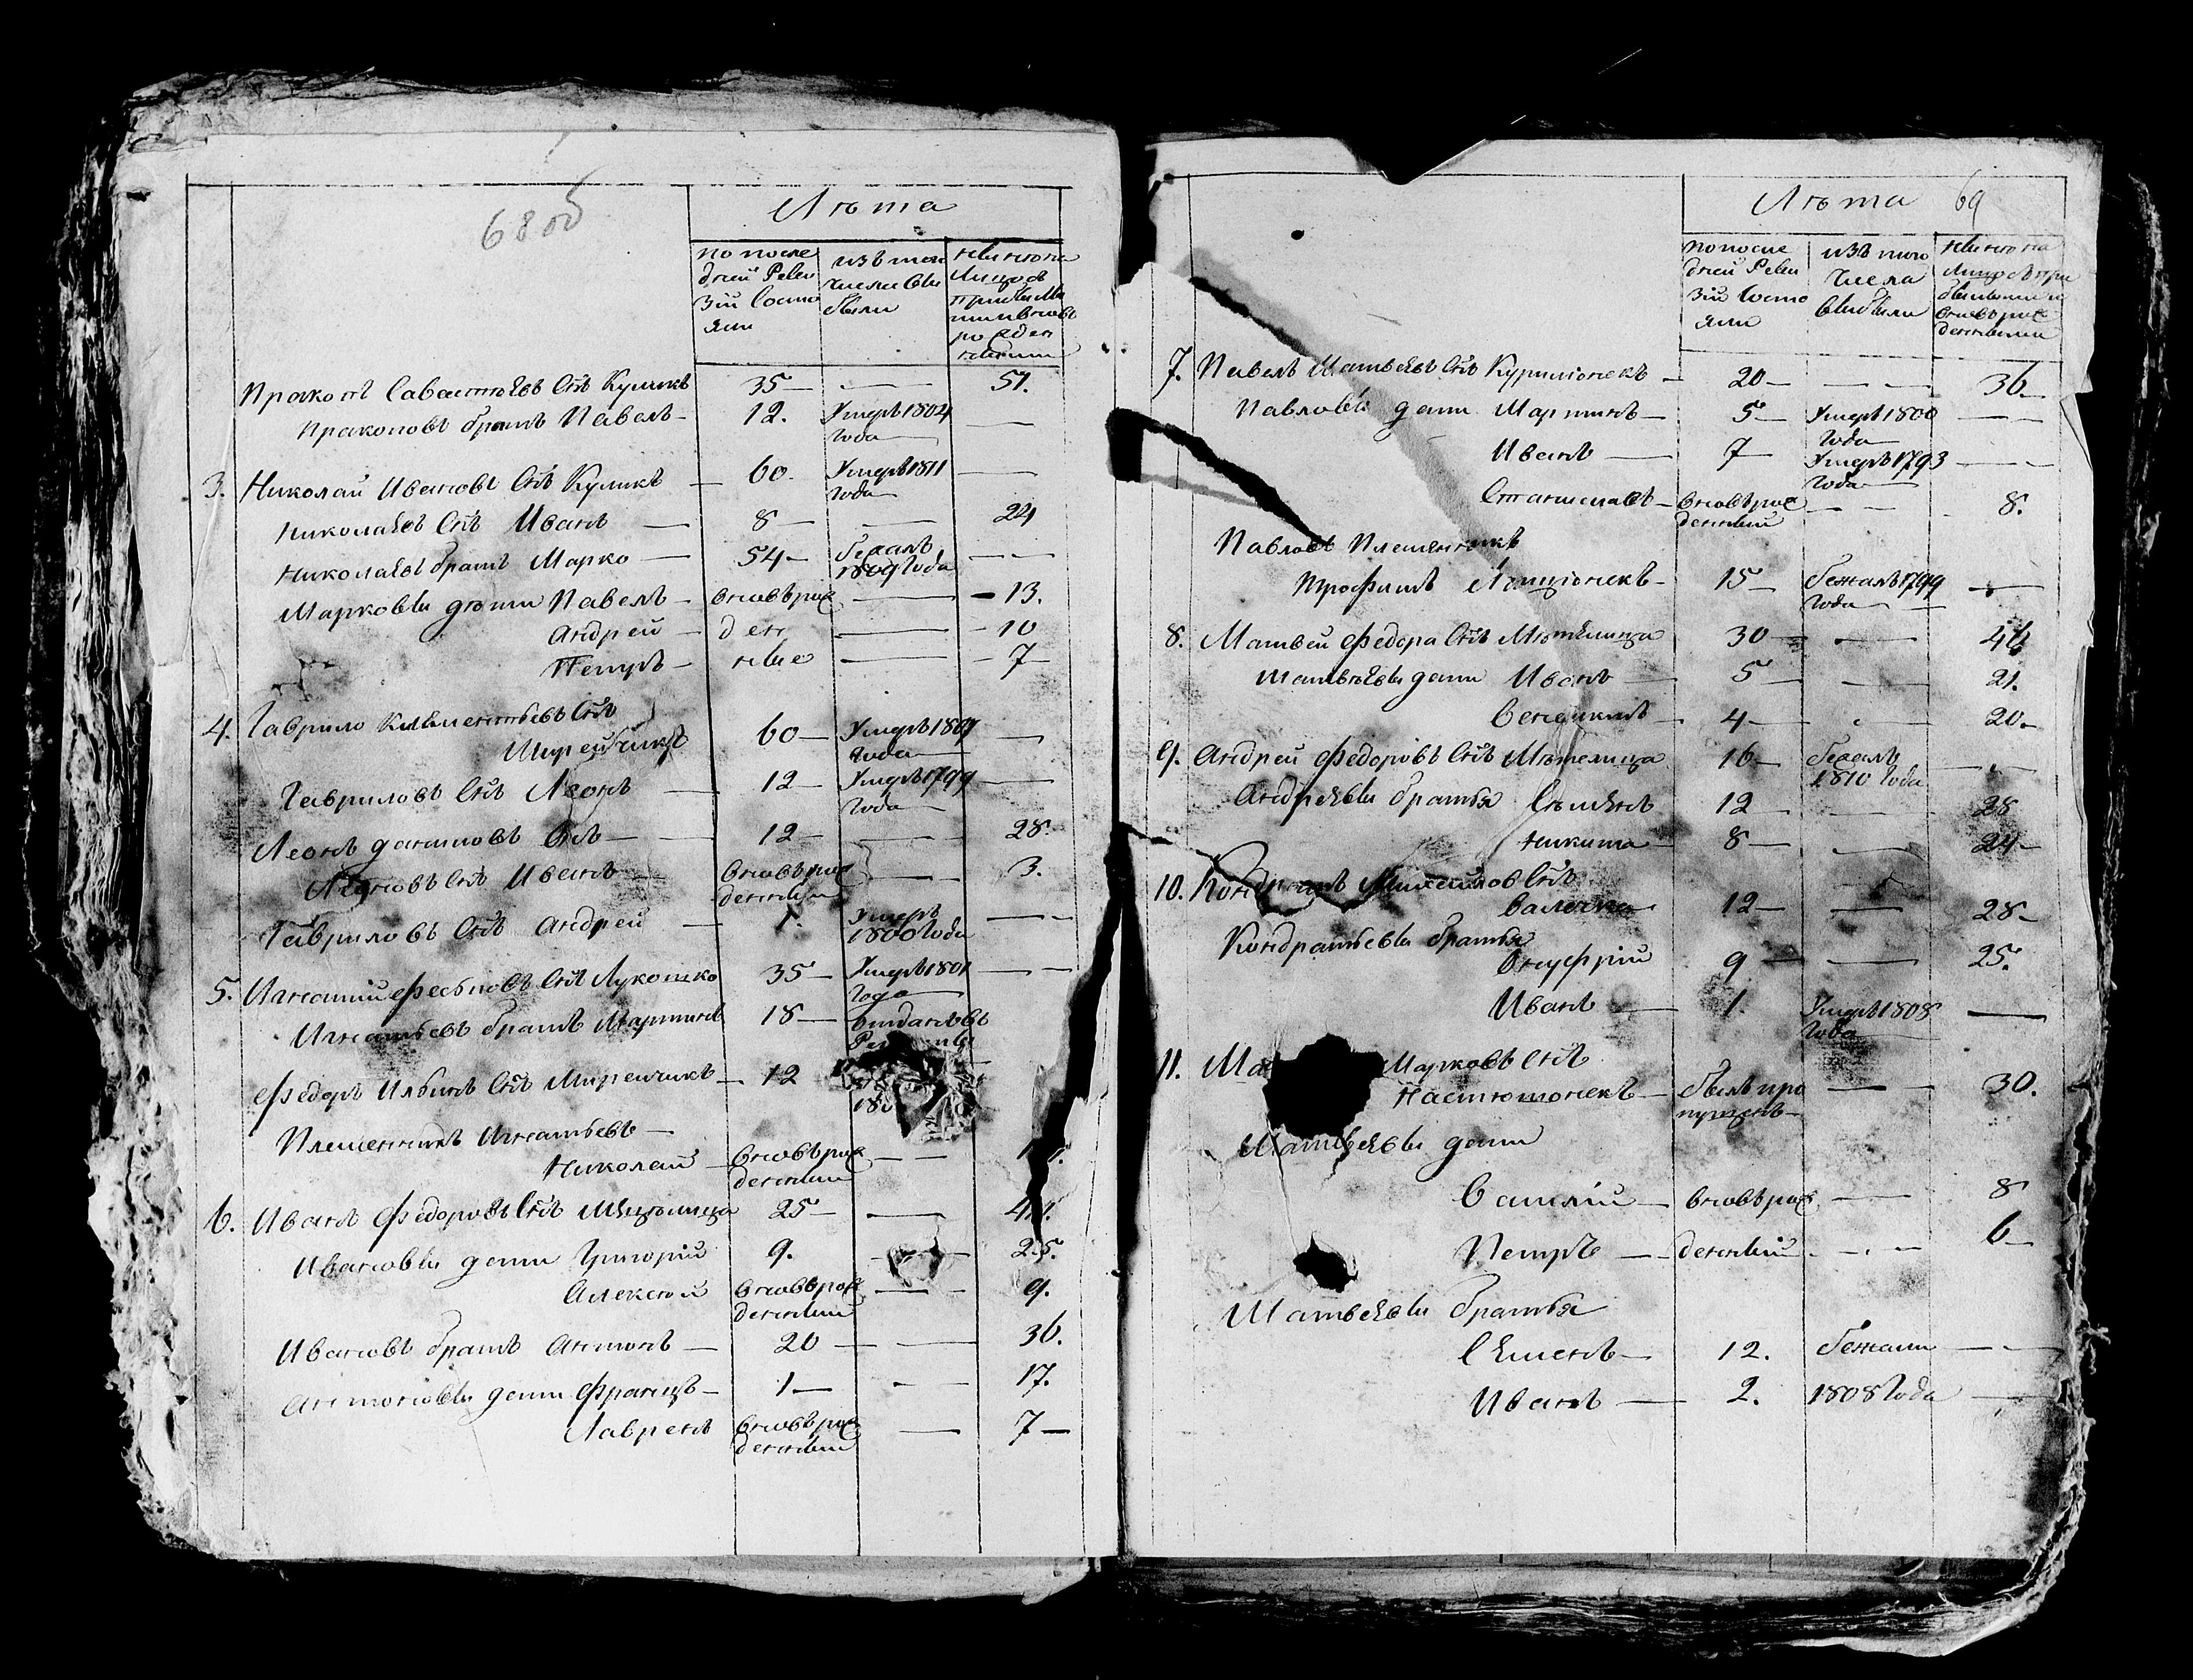 68 об
Лѣта
по после
дней Реви
зіи состо
яли
изъ того
числа вы
были
ныне на
лицо съ
прибылы
ми вновь
рожден
ными
Пракопъ Савастьѣвъ Снъ Куликъ 35 — — 51.
Пракоповъ братъ Павелъ — 12. Умеръ 1804 —
года
3. Николай Ивановъ Снъ Куликъ — 60. Умеръ 1811 —
года
Николаѣвъ Снъ Иванъ — 8 — — 24
Николаѣвъ братъ Марко — 54 — бежалъ — —
1809 года
Марковы дѣти Павелъ — вновь рож — — 13.
Андрей — ден — — 10
Петръ — ные — — 7 —
4. Гаврило Климентьевъ Снъ
60 — Умеръ —
года
Гавриловъ Снъ Леонъ — 12 — Умеръ 1799 —
года
Леонъ Даниловъ Снъ — 12 — — 28.
Леоновъ Снъ Иванъ — вновь рож — 3.
денный
Гавриловъ Снъ Андрей — 1. Умеръ — —
1800 года
5. Игнатій Снъ Лукошко 35 — Умеръ 1801 — —
года
Игнатьевъ братъ Мартинъ 18 — отданъ въ
Федоръ Ильинъ Снъ Миренчикъ — 12
Племенникъ Игнатьевъ —
Николай — вновь рож — —
денный
6. Иванъ Федоровъ Снъ 25 — —
Ивановы дети Григорій 9. — 25.
Алексей вновь рож — — 9.
денный
Ивановъ братъ Антонъ — 20 — — 36.
Антоновы дети Францъ — 1 — — 17.
Лавренъ вновь рож — 7 —
денный
Лѣта 69
по после
дней Реви
зіи состо
яли
изъ того
числа
выбыли
ныне на
лицо съ при
былыми и
вновь рож
денными
7. Павелъ Матвеѣвъ Снъ Куриліонекъ — 20 — — — 36.
Павловы дети Мартинъ — 5 — Умеръ 1800 — —
года
Иванъ — 7 — Умеръ 1793 — —
года
Станиславъ — вновь рож — — 8.
денный
Павловъ Племянникъ
Трофимъ — 15 — бежалъ 1799 —
года
8. Матвей Федора Снъ 30 — — 46
Матвѣѣвы дети Иванъ — 5 — — 21.
4 — — 20 —
9. Андрей Федоровъ Снъ Мѣтелица 16 — бежалъ —
1810 года
Андреѣвы братья Сѣмѣнъ 12 — 28
Никита — 8 — — 24 —
10. Снъ
12 — — 28 —
Кондратьевы братья
Онуфрій 9 — — 25.
Иванъ — 1. Умеръ 1808 —
года
11. Ма Марковъ Снъ
Настютонекъ — былъ про — 30.
пущенъ —
Матвеѣвы дети
Василій — вновь рож — 8
Петръ — денный — 6 —
Матвеѣвы братья
Сѣменъ — 12. бежали — —
Иванъ — 2. 1808 года —